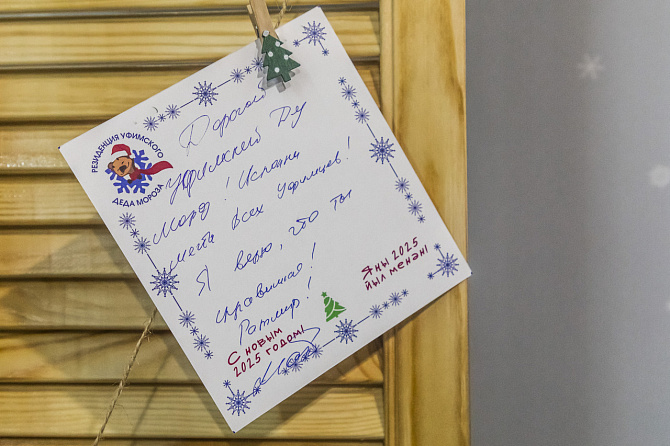 РЕЗИДЕНЦИЯ УФИМСКОГО
ДЕДА МОРОЗА
Дорогой
Уфимский Де
Мороз! Исполни
мечты всех Уфимцев!
Я верю, что ты
справишься!
Ратмир!
С НОВЫМ
2025 ГОДОМ!
ЯҢЫ 2025
ЙЫЛ МЕНӘН!